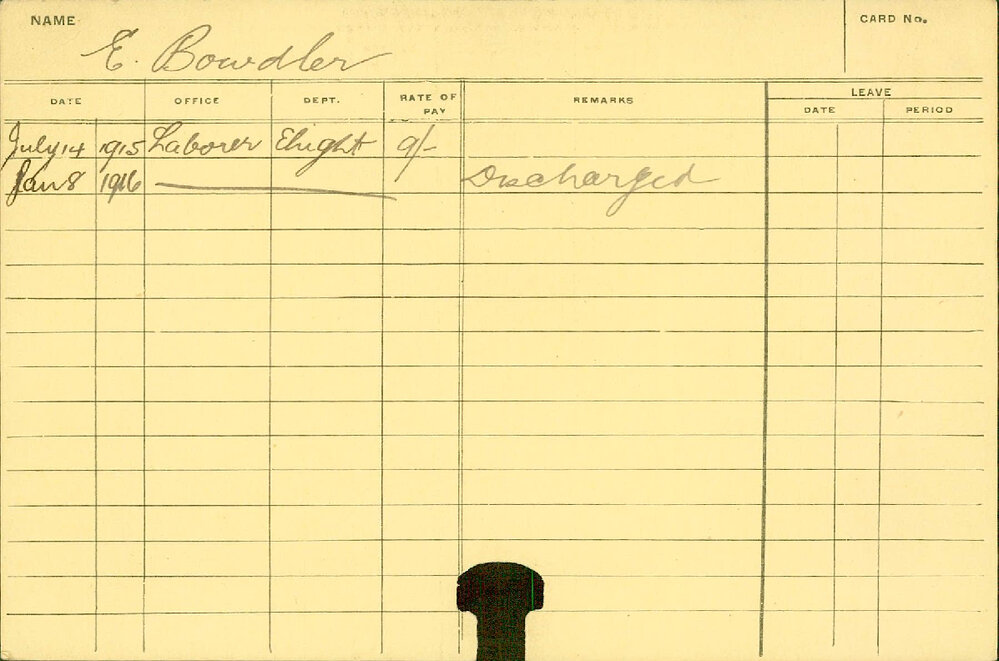 NAME
CARD No.
E. Bowdler
DATE OFFICE DEPT. RATE OF PAY REMARKS LEAVE
DATE PERIOD
July 14 1915 Laborer Elright 9/-
Jan 8 1916 Discharged